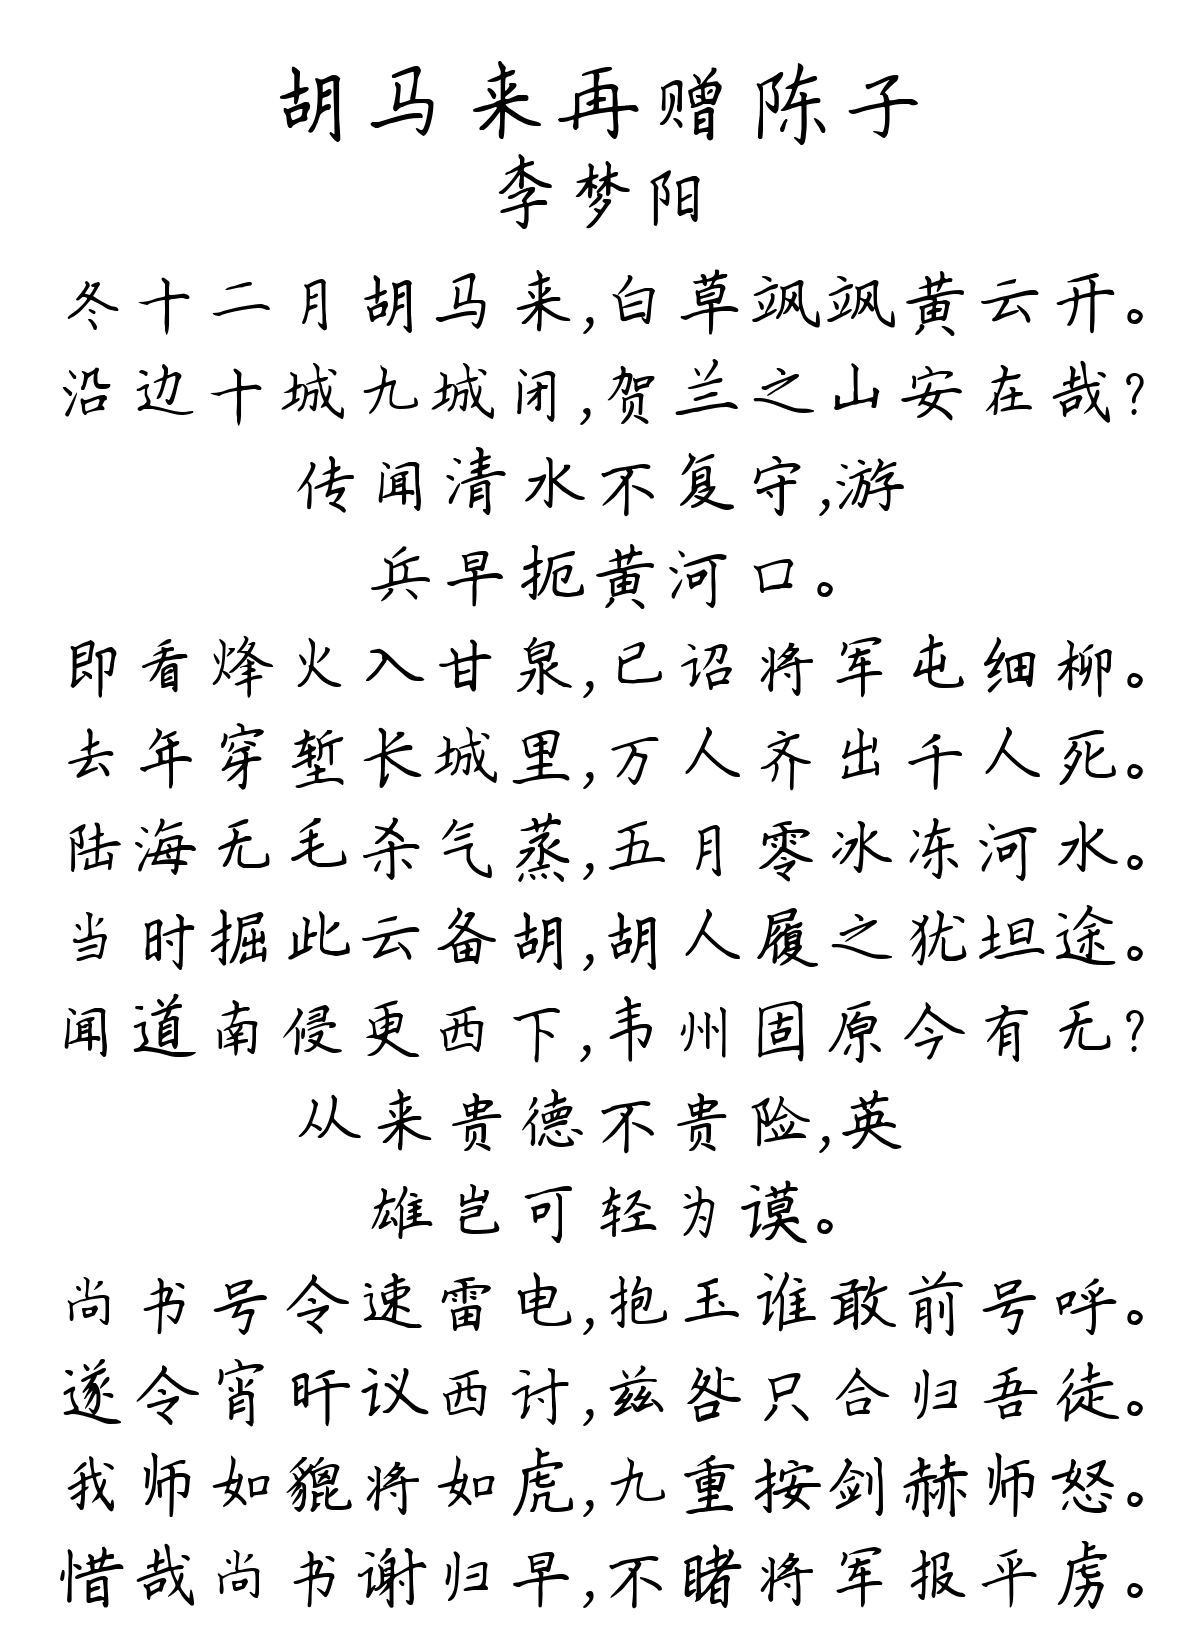 胡马来再赠陈子
李梦阳
冬十二月胡马来,白草飒飒黄云开。
沿边十城九城闭,贺兰之山安在哉?
传闻清水不复守,游
兵早扼黄河口。
即看烽火入甘泉,已诏将军屯细柳。
去年穿堑长城里,万人齐出千人死。
陆海无毛杀气蒸,五月零冰冻河水。
当时掘此云备胡,胡人履之犹坦途。
闻道南侵更西下,韦州固原今有无?
从来贵德不贵险,英
雄岂可轻为谟。
尚书号令速雷电,抱玉谁敢前号呼。
遂令宵旰议西讨,兹咎只合归吾徒。
我师如貔将如虎,九重按剑赫师怒。
惜哉尚书谢归早,不睹将军报平虏。